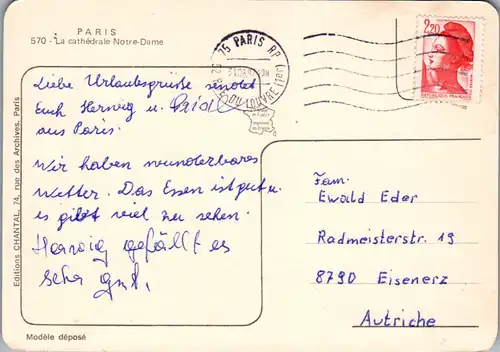 PARIS
570 - La cathédrale Notre-Dame
Liebe Urlaubsgrüße sendet
Euch Herwig u.
aus Paris.
Wir haben wunderbares
Wetter. Das Essen ist gut u.
es gibt viel zu sehen.
Herwig gefällt es
sehr gut.
Modèle déposé
Editions CHANTAL, 74, rue des Archives, Paris
75 PARIS RP
DU LOUVRE
2,20
Fam.
Ewald Eder
Radmeisterstr. 19
8790 Eisenerz
Autriche